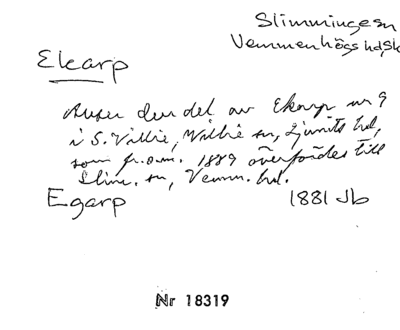 Slimminge sn
Vemmenhögs hd, Sk
Ekarp
Avser den del av Ekarp nr 9
i S. Villie, Villie sn, Ljunits hd,
som fr.o.m. 1889 överfördes till
Slim. sn, Vemm. hd.
Egarp 1881 Jb
Nr 18319